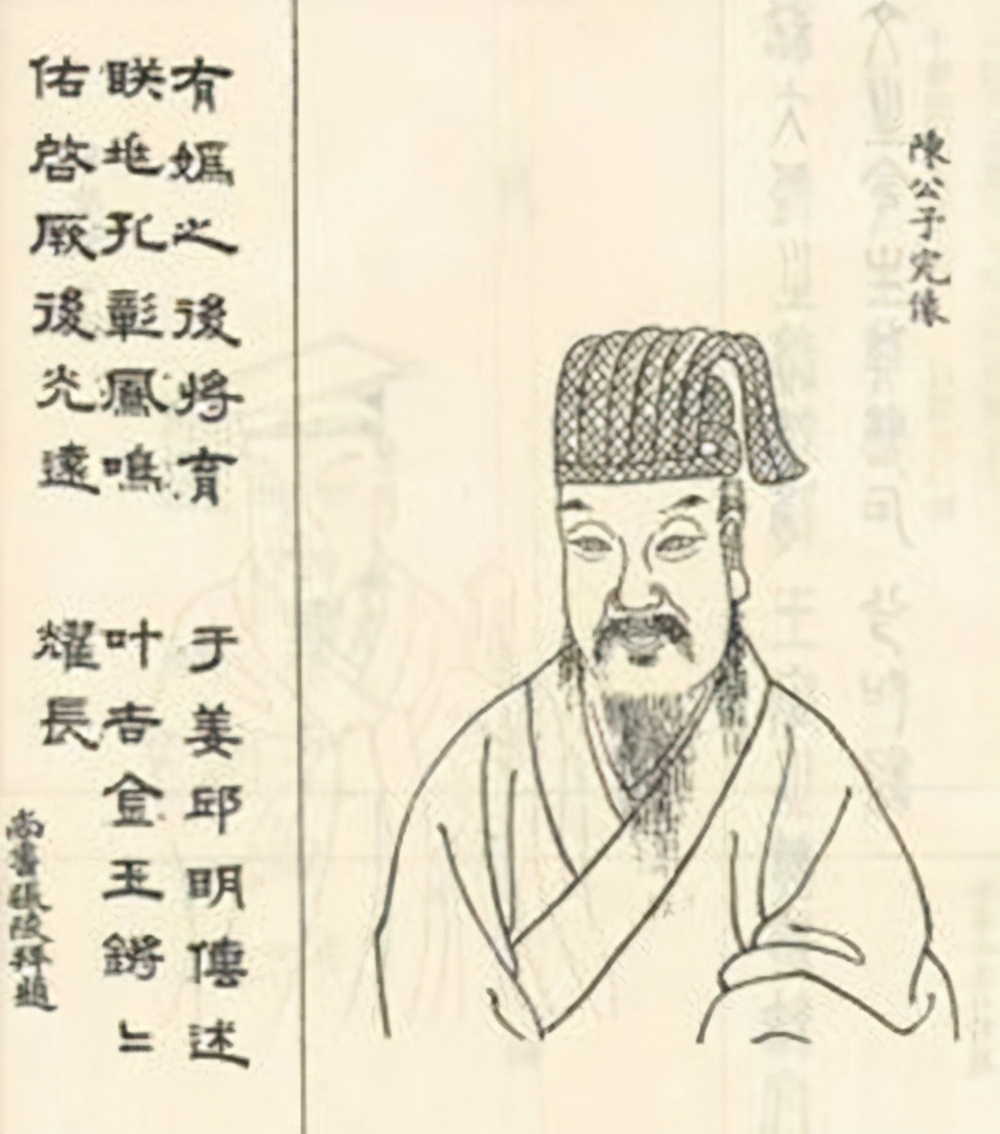 陳公子完像
有媯之後將育于姜邱明傳述
眹垗孔彰鳳鳴叶吉金玉鏘〻
佑啓厥後光遠耀長
尚書張陵拜題